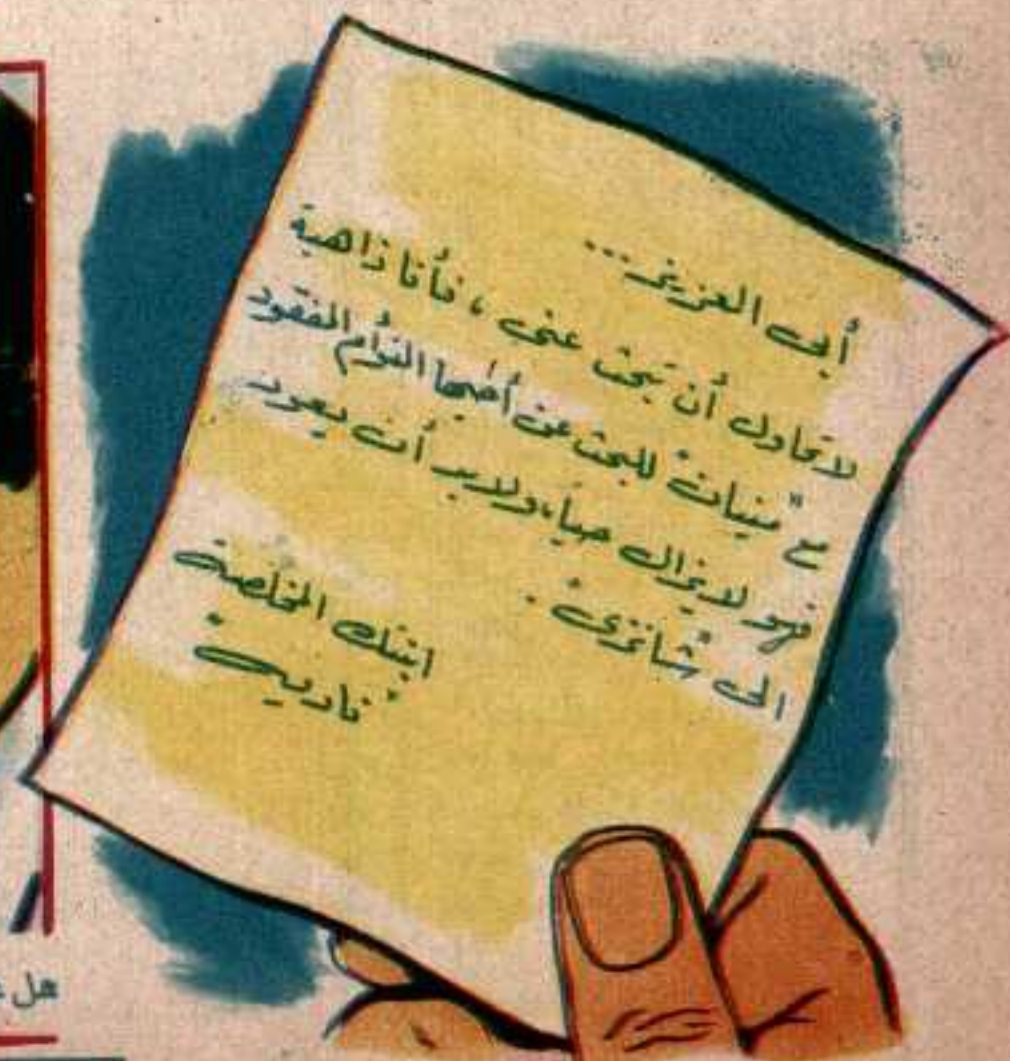 أبى العزيز...
لا تحاول أن تبحث عنى ، فأنا ذاهبة
مع "ميبات" للبحث عن أخيها التوأم المفقود
فهو لا يزال حيا، ولابد أن يعود
الى "شانزى" .
ابنتك المخلصة
نادية
هل